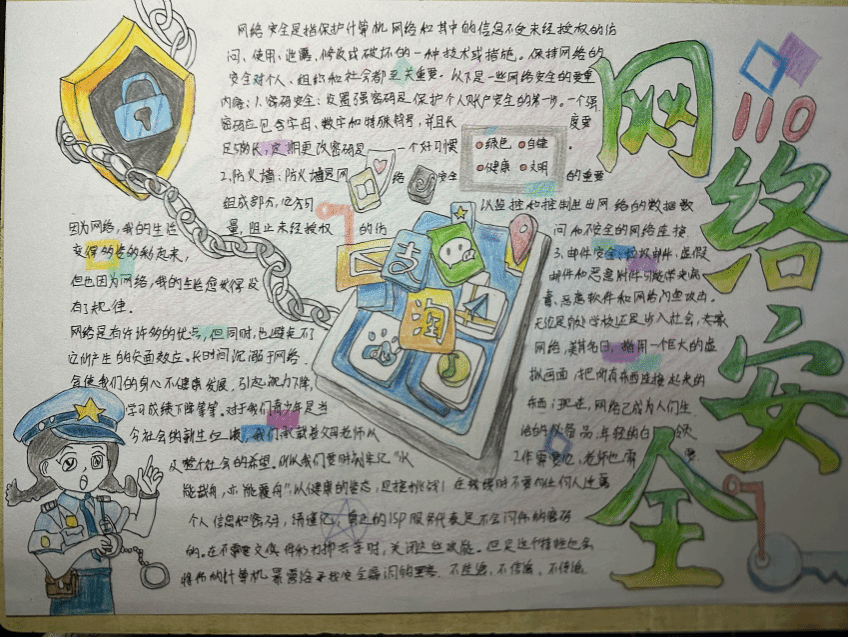 网络安全
110
网络安全是指保护计算机网络和其中的信息不受未经授权的访
问、使用、泄露、修改或破坏的一种技术或措施。保持网络的
安全对个人、组织和社会都至关重要。以下是一些网络安全的重要
内容：1、密码安全：设置强密码是保护个人账户安全的第一步。一个强
密码应包含字母、数字和特殊符号，并且长度要
足够长，定期更改密码是一个好习惯。
绿色 自律
健康 文明
2、防火墙：防火墙是网络安全的重要
组成部分，它可以监控和控制进出网络的数据数
量，阻止未经授权的访问和不安全的网络连接
3、邮件安全：垃圾邮件、虚假
邮件和恶意附件可能带来病
毒、恶意软件和网络钓鱼攻击。
无论是学校还是步入社会，大家
网络，美其名曰，指用一个巨大的虚
拟画面，把所有东西连接起来的
东西；现在，网络已成为人们生
活的必需品，年轻的白领
因为网络，我的生活
变得多姿多彩起来，
但也因为网络，我的生活变得没
有了规律。
网络是有许许多多的优点，但同时，也避免不了
它所产生的负面效应。长时间沉溺于网络
会使我们的身心不健康发展，引起视力下降，
学习成绩下降等等。对于我们青少年是当
今社会的新生
及整个社会的希望。所以我们要时刻牢记“水
能载舟，亦能覆舟”，以健康的姿态，迎接挑战！在
个人信息和密码，请谨记，真正的ISP服务代表是不会问你的密码
的。在不需要文件和打印共享时，关闭这些功能。但是这个特性也会
将你的计算机暴露给寻找安全漏洞的
淘
支